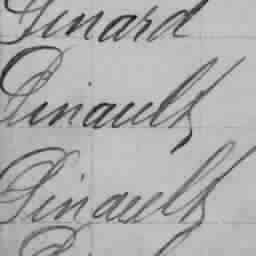 Pinard
Pinault
Pinault